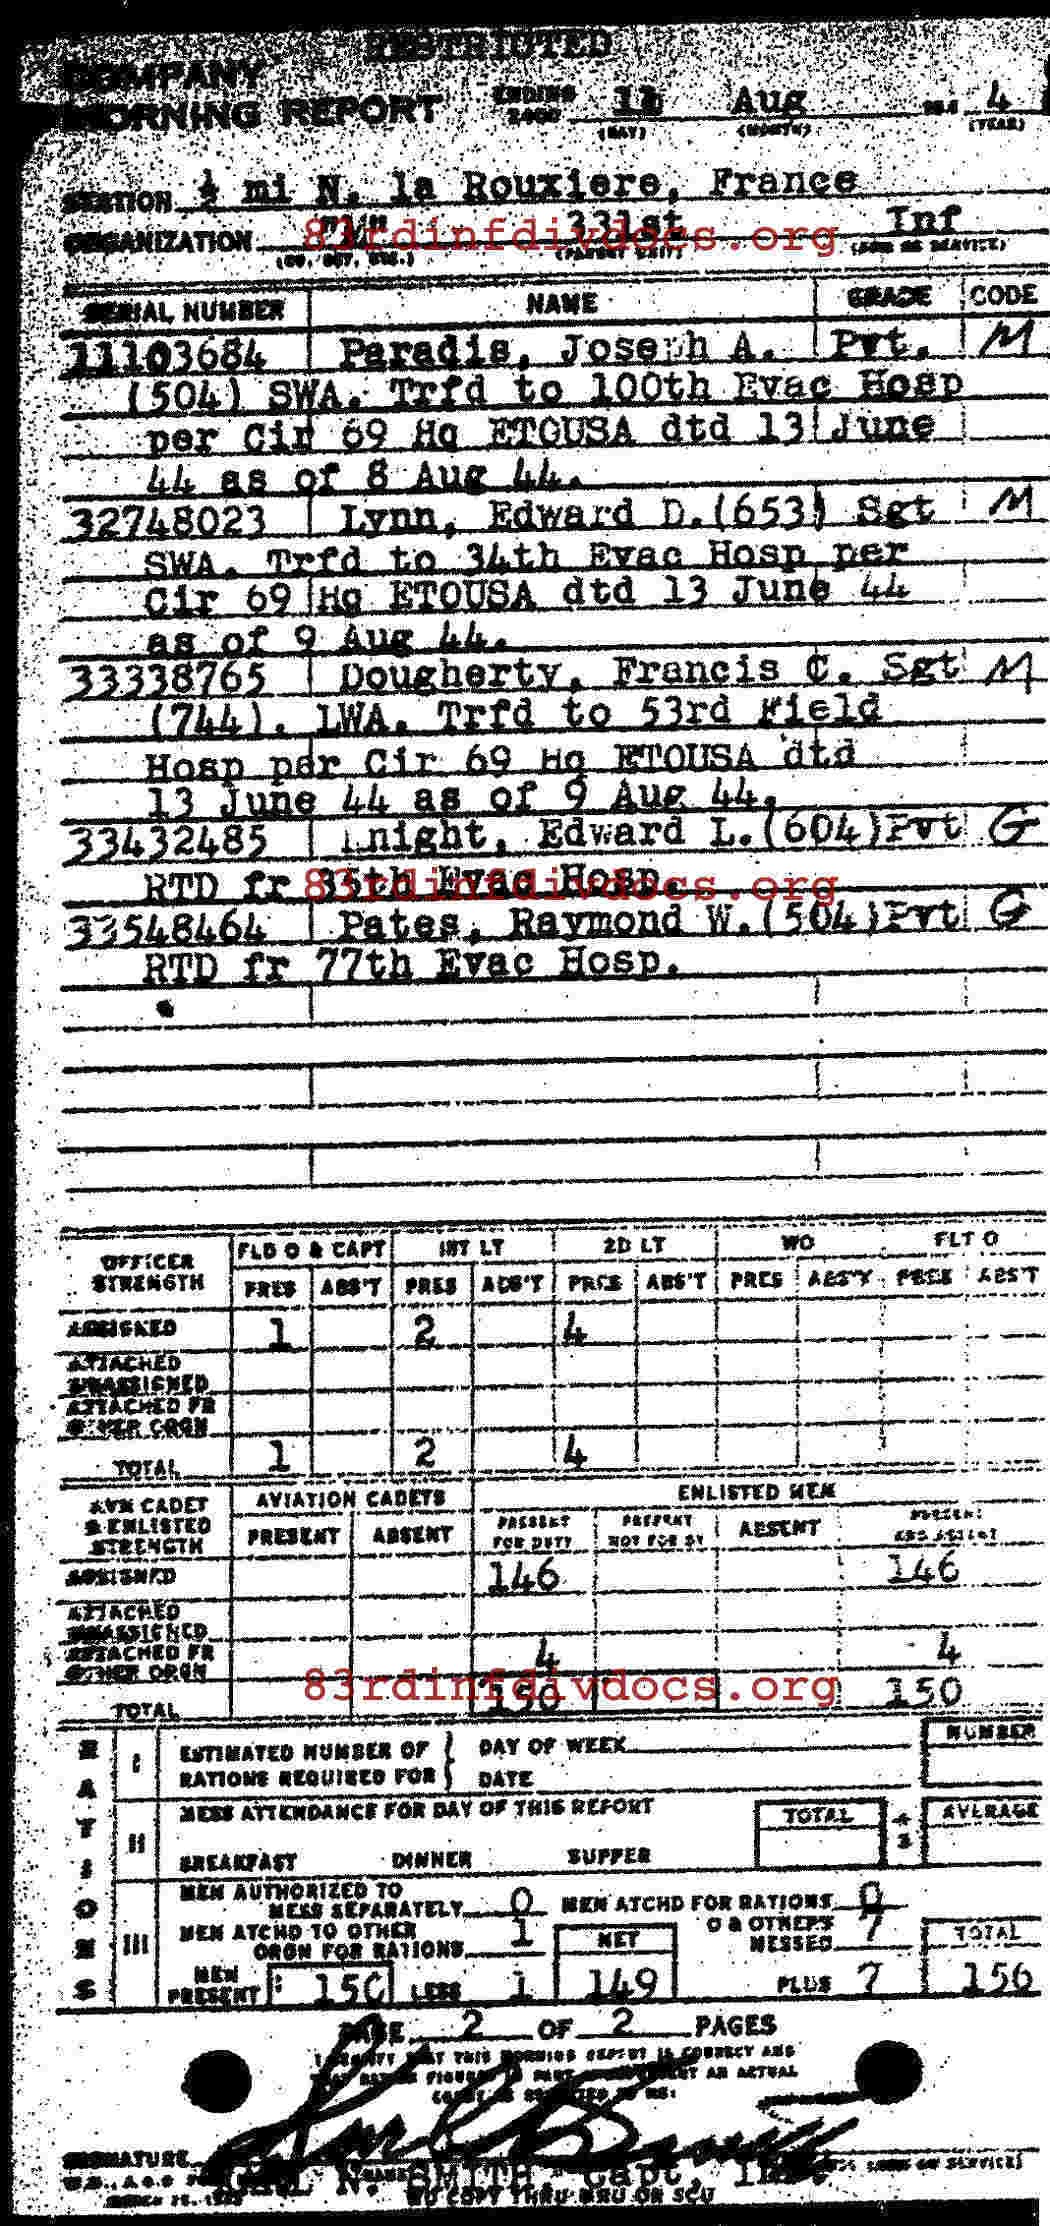 RESTRICTED
COMPANY
MORNING REPORT ENDING 2400 Aug 4
(DAY) (MONTH) (YEAR)
STATION ½ mi N. la Rouxiere, France
ORGANIZATION 331st Inf
83rdinfdivdocs.org
(CO, DET, ETC.) (PARENT UNIT) (ARM OR SERVICE)
SERIAL NUMBER NAME GRADE CODE
11103684 Paradis, Joseph A. Pvt. M
(504) SWA. Trfd to 100th Evac Hosp
per Cir 69 Hq ETOUSA dtd 13 June
44 as of 8 Aug 44.
32748023 Lynn, Edward D.(653) Sgt M
SWA. Trfd to 34th Evac Hosp per
Cir 69 Hq ETOUSA dtd 13 June 44
as of 9 Aug 44.
33338765 Dougherty, Francis C. Sgt M
(744). LWA. Trfd to 53rd Field
Hosp per Cir 69 Hq ETOUSA dtd
13 June 44 as of 9 Aug 44.
33432485 Knight, Edward L.(604)Pvt G
RTD fr 35th Evac Hosp.
83rdinfdivdocs.org
33548464 Pates, Raymond W.(504)Pvt G
RTD fr 77th Evac Hosp.
OFFICER STRENGTH FLD O & CAPT 1ST LT 2D LT WO FLT O
PRES ABS'T PRES ABS'T PRES ABS'T PRES ABS'T PRES ABS'T
ASSIGNED 1 2 4
ATTACHED UNASSIGNED
ATTACHED FR OTHER ORGN
TOTAL 1 2 4
AVN CADET & ENLISTED STRENGTH AVIATION CADETS ENLISTED MEN
PRESENT ABSENT PRESENT FOR DUTY PRESENT NOT FOR DY ABSENT PRESENT AND ABSENT
ASSIGNED 146 146
ATTACHED UNASSIGNED
ATTACHED FR OTHER ORGN 4 4
83rdinfdivdocs.org
TOTAL 150 150
RATIONS
I ESTIMATED NUMBER OF RATIONS REQUIRED FOR DAY OF WEEK NUMBER
DATE
II MESS ATTENDANCE FOR DAY OF THIS REPORT TOTAL ÷ 3 AVERAGE
BREAKFAST DINNER SUPPER
III MEN AUTHORIZED TO MESS SEPARATELY 0 MEN ATCHD FOR RATIONS 0
MEN ATCHD TO OTHER ORGN FOR RATIONS 1 NET O & OTHERS MESSED 7 TOTAL
MEN PRESENT 150 LESS 1 149 PLUS 7 156
PAGE 2 OF 2 PAGES
I CERTIFY THAT THIS MORNING REPORT IS CORRECT AND
SIGNATURE
N. SMITH, Capt, Inf.
MARCH